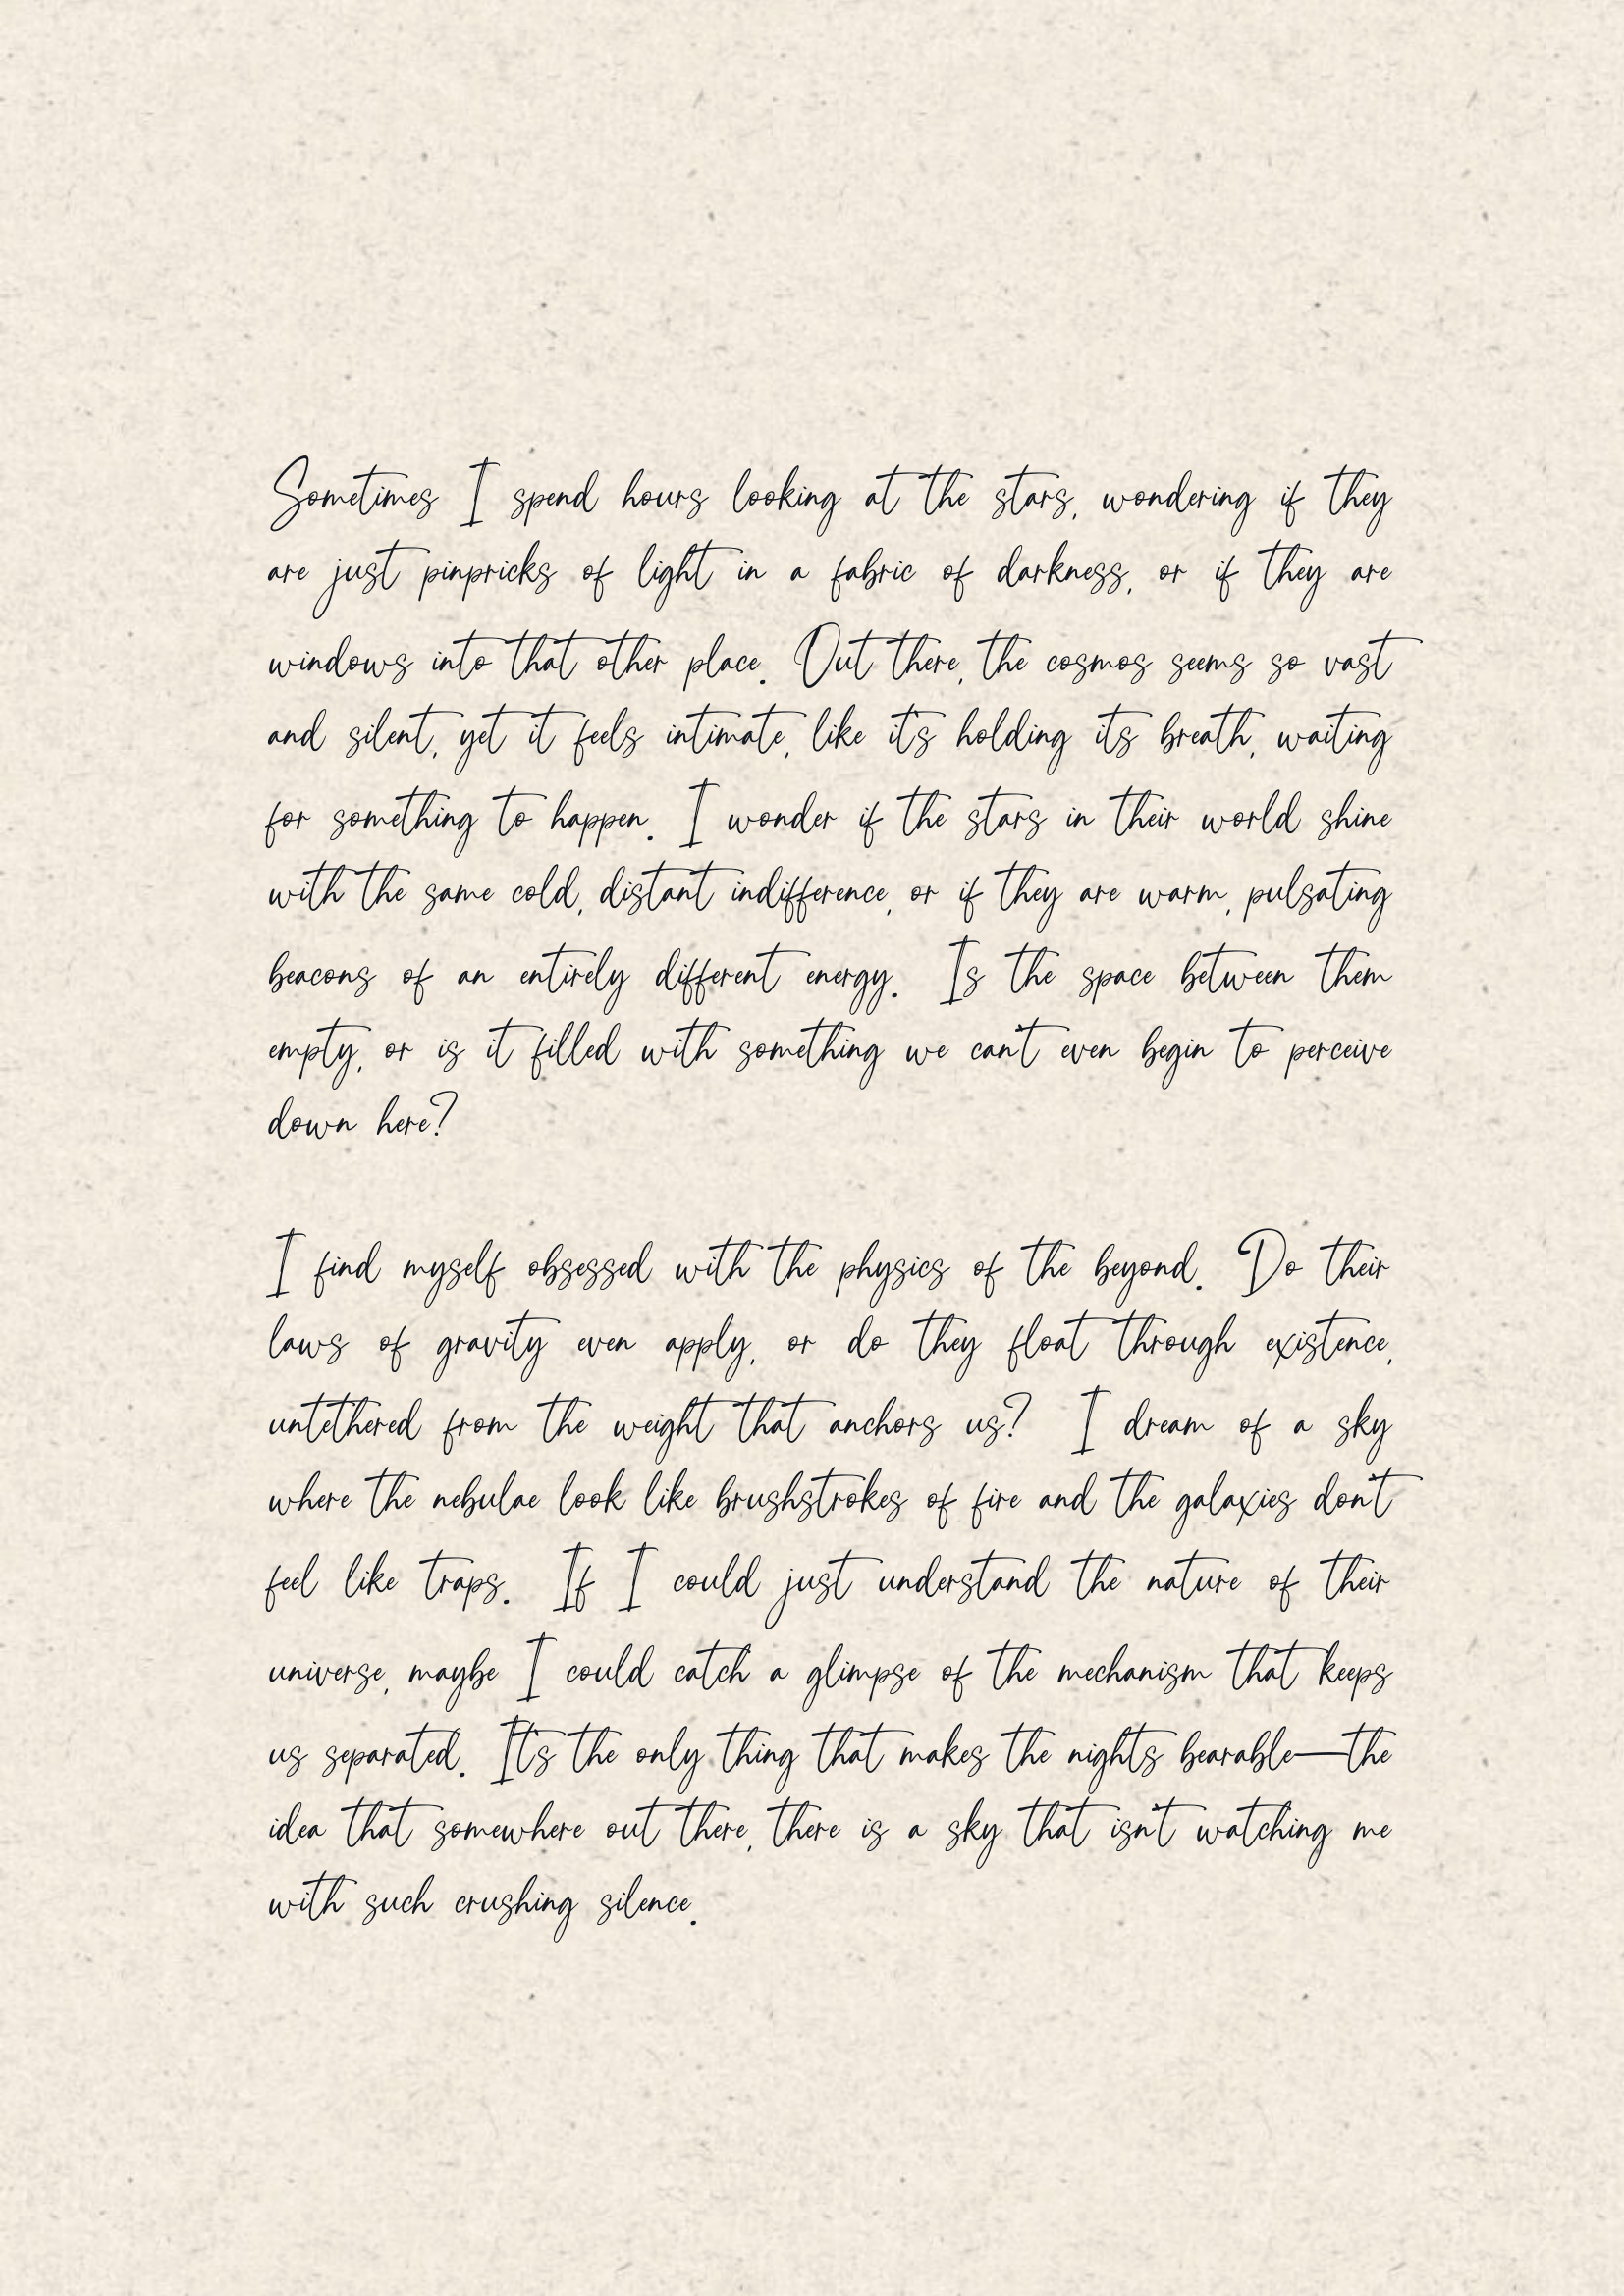 Sometimes I spend hours looking at the stars, wondering if they
are just pinpricks of light in a fabric of darkness, or if they are
windows into that other place. Out there, the cosmos seems so vast
and silent, yet it feels intimate, like it's holding its breath, waiting
for something to happen. I wonder if the stars in their world shine
with the same cold, distant indifference, or if they are warm, pulsating
beacons of an entirely different energy. Is the space between them
empty, or is it filled with something we can't even begin to perceive
down here?
I find myself obsessed with the physics of the beyond. Do their
laws of gravity even apply, or do they float through existence,
untethered from the weight that anchors us? I dream of a sky
where the nebulae look like brushstrokes of fire and the galaxies don't
feel like traps. If I could just understand the nature of their
universe, maybe I could catch a glimpse of the mechanism that keeps
us separated. It's the only thing that makes the nights bearable—the
idea that somewhere out there, there is a sky that isn't watching me
with such crushing silence.